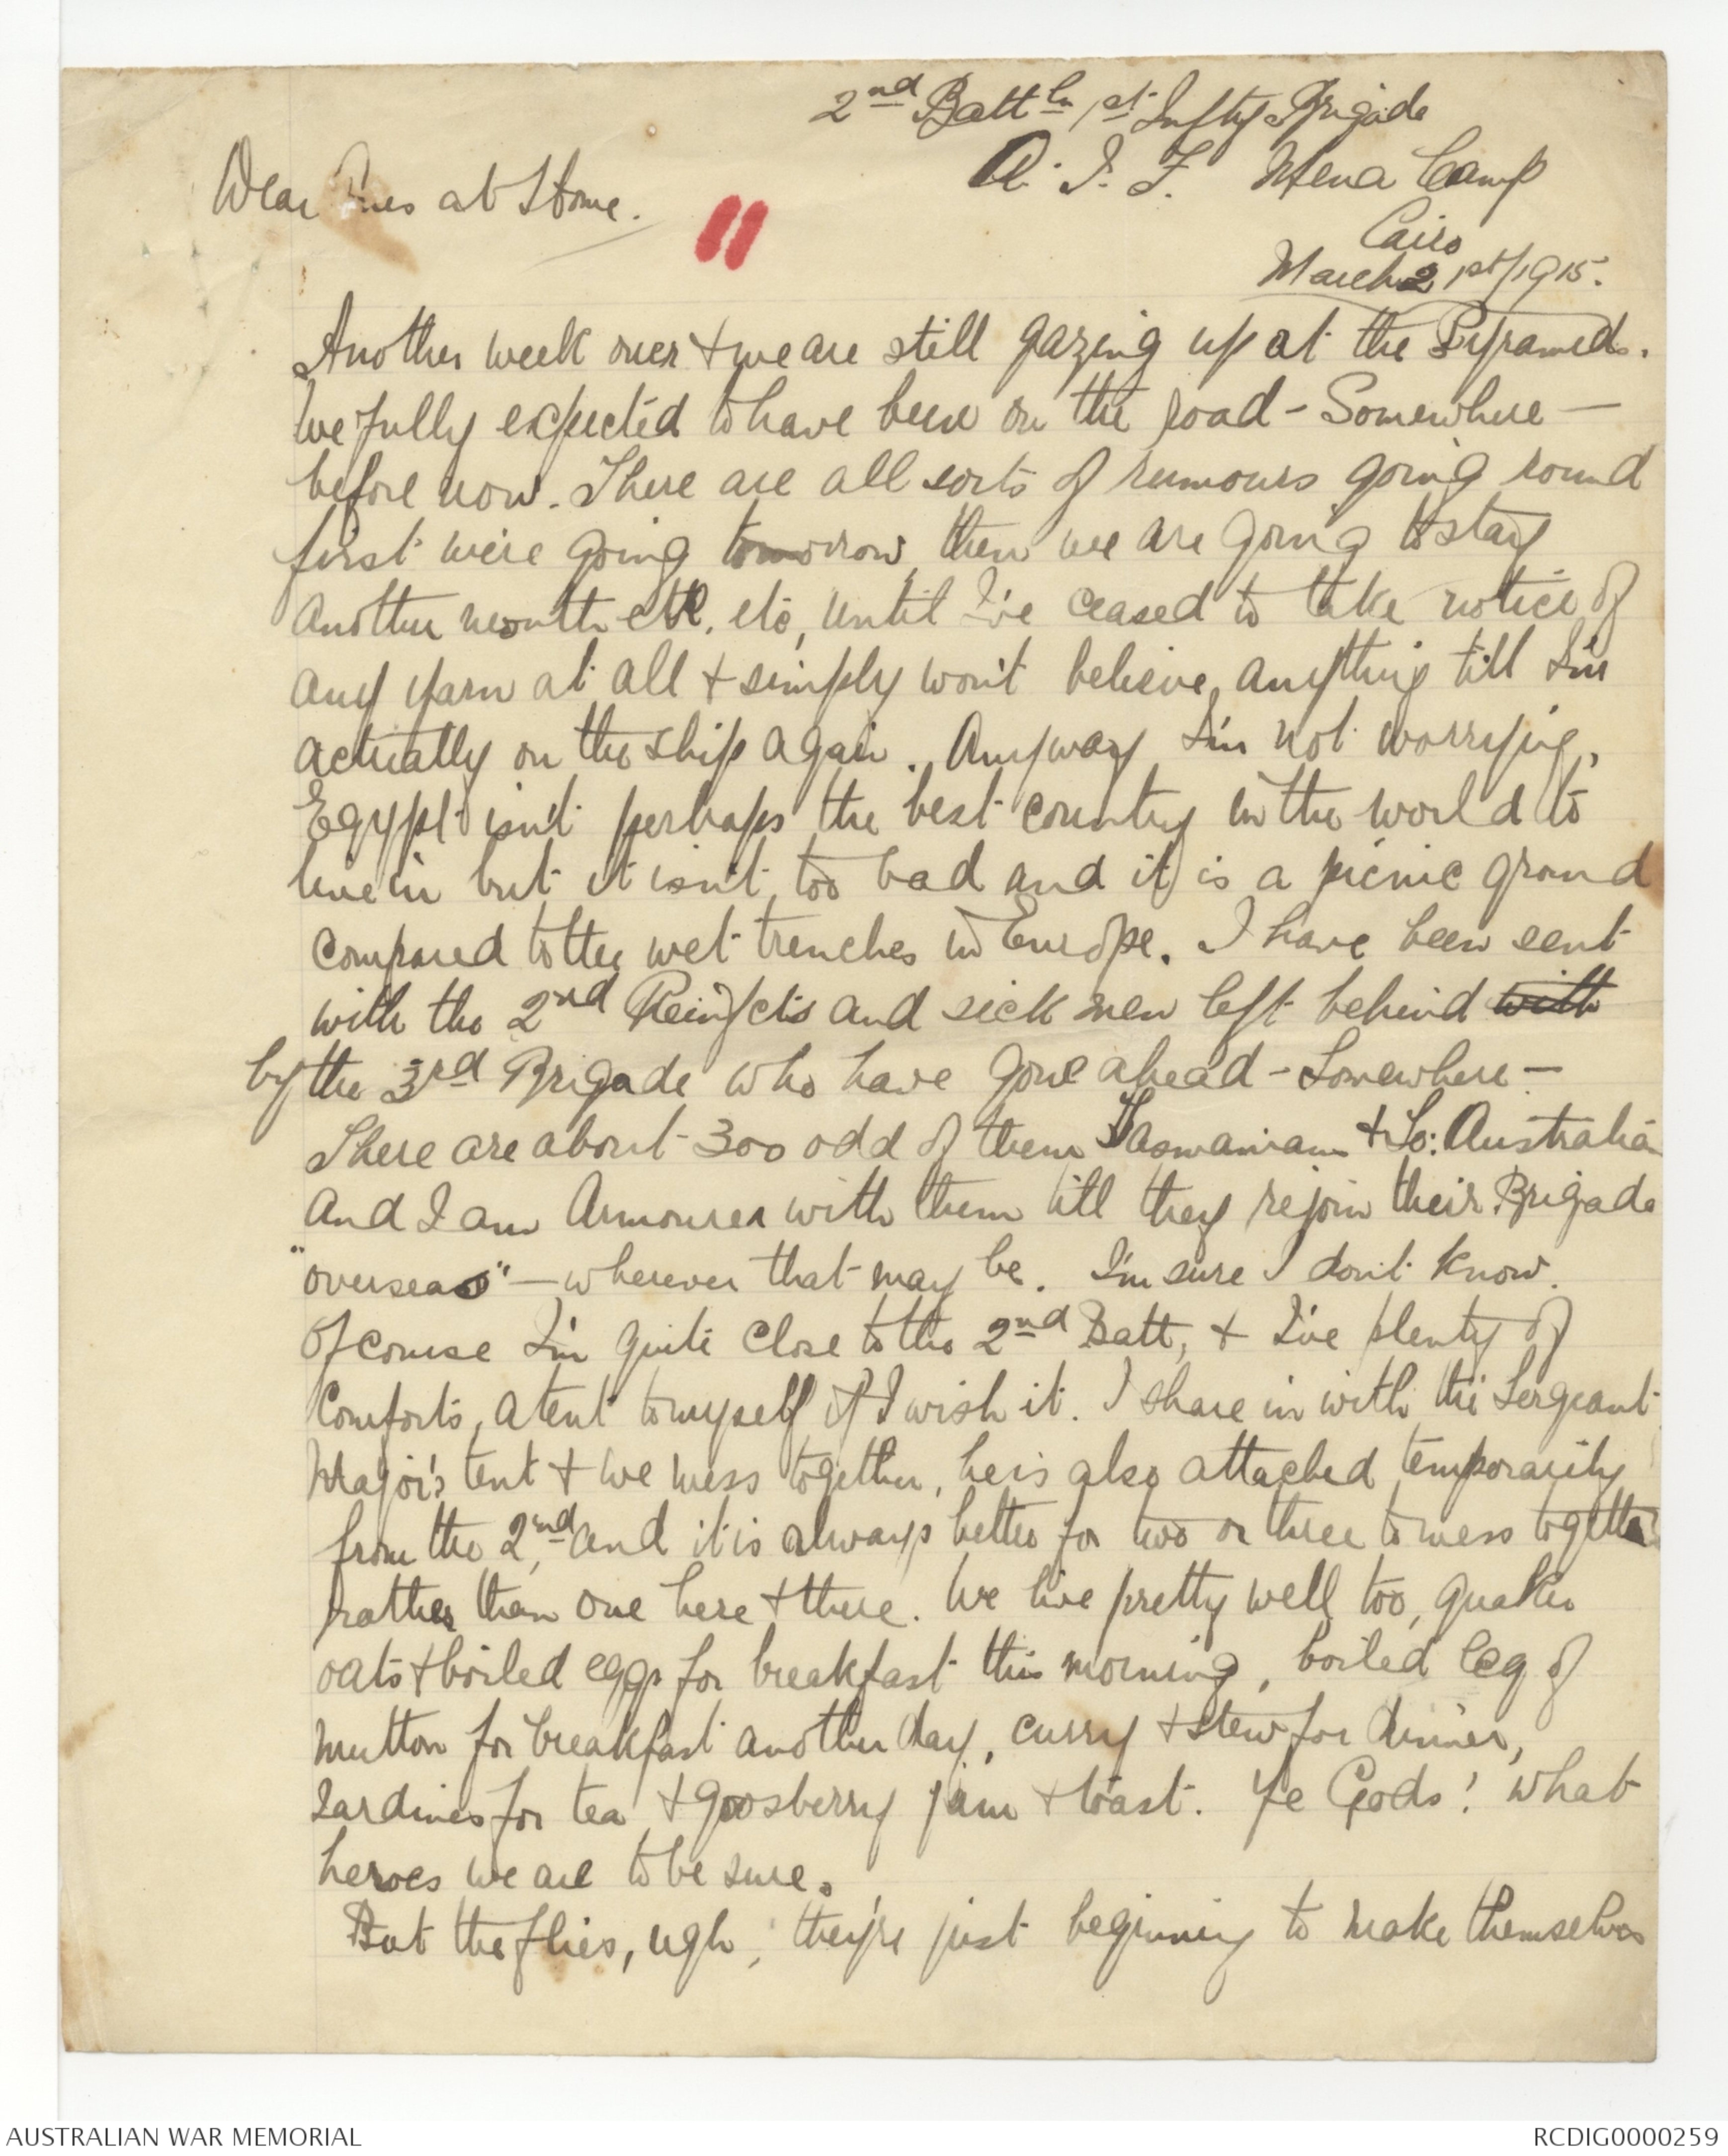 2nd Battln 1st Inftry Brigade
A. I. F. Mena Camp
Cairo
March 21st/1915.
Dear Ones at Home.
11
Another week over + we are still gazing up at the Pyramids.
We fully expected to have been on the road - Somewhere -
before now. There are all sorts of rumours going round
first we're going tomorrow, then we are going to stay
another month etc. etc, until I've ceased to take notice of
any yarn at all + simply won't believe anything till I'm
actually on the ship again. Anyway I'm not worrying,
Egypt isn't perhaps the best country in the world to
live in but it isn't too bad and it is a picnic ground
compared to the wet trenches in Europe. I have been sent
with the 2nd Reinfcts and sick men left behind with
by the 3rd Brigade who have gone ahead - Somewhere -
There are about 300 odd of them Tasmanians + So: Australian
and I am Armourer with them till they rejoin their Brigade
"overseas" - wherever that may be. I'm sure I don't know.
Of course I'm quite close to the 2nd Batt, + I've plenty of
Comforts, a tent to myself if I wish it. I share in with the Sergeant
Major's tent + we mess together, he is also attached temporarily
from the 2nd, and it is always better for two or three to mess together
rather than one here + there. We live pretty well too, quaker
oats + boiled eggs for breakfast this morning, boiled leg of
mutton for breakfast another day, curry + stew for dinner,
Sardines for tea + goosberry jam + toast. Ye Gods! what
heroes we are to be sure.
But the flies, ugh, they're just beginning to make themselves
AUSTRALIAN WAR MEMORIAL
RCDIG0000259